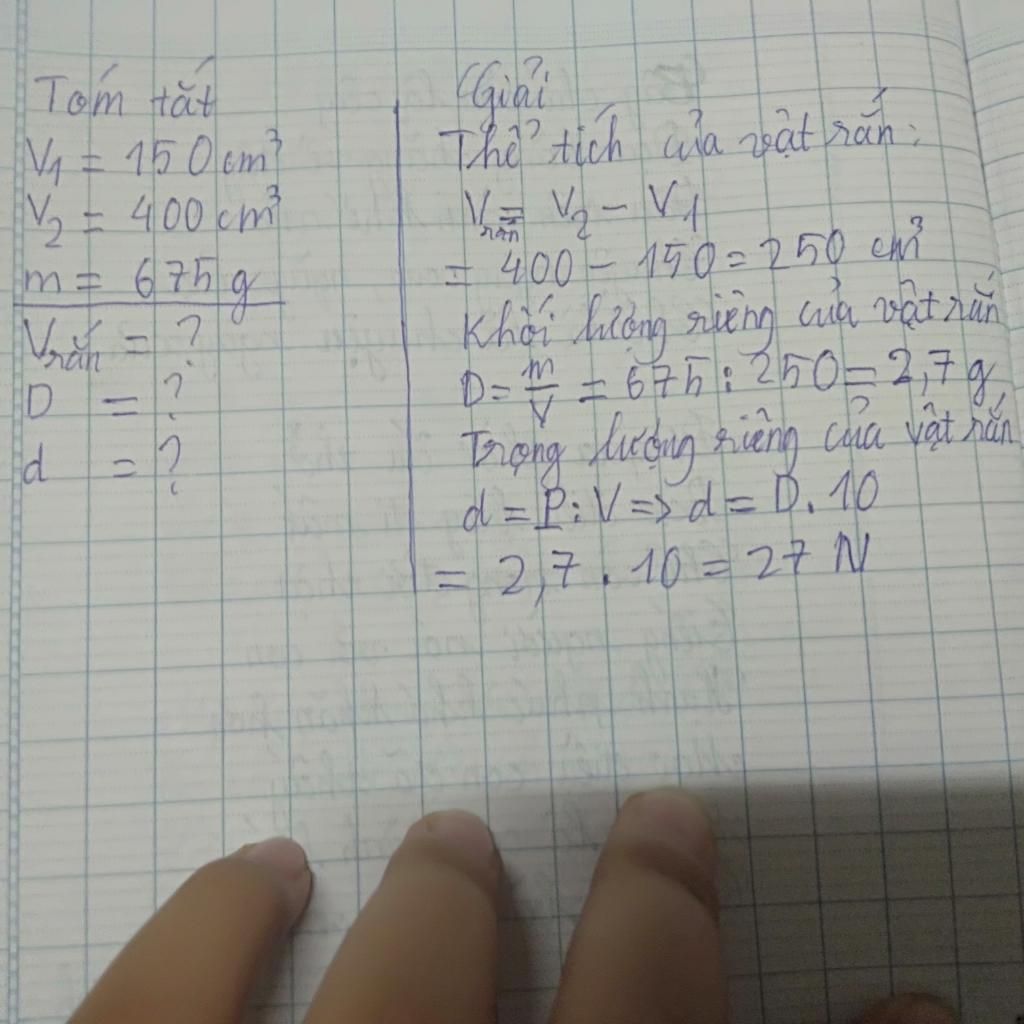 Tóm tắt
V1 = 150 cm³
V2 = 400 cm³
m = 675 g
Vrắn = ?
D = ?
d = ?
Giải
Thể tích của vật rắn:
Vrắn = V2 - V1
= 400 - 150 = 250 cm³
Khối lượng riêng của vật rắn
D = m/V = 675 : 250 = 2,7 g
Trọng lượng riêng của vật rắn
d = P : V => d = D. 10
= 2,7 . 10 = 27 N